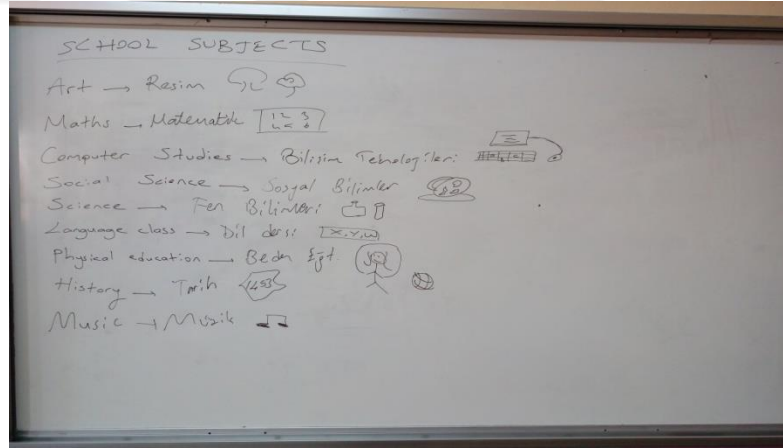 SCHOOL SUBJECTS
Art → Resim
Maths → Matematik 1 2 3
Computer Studies → Bilişim Teknologileri
Social Science → Sosyal Bilimler
Science → Fen Bilimleri
Language class → Dil dersi X, Y, W
Physical education → Beden Eğt.
History → Tarih 1453
Music → Müzik